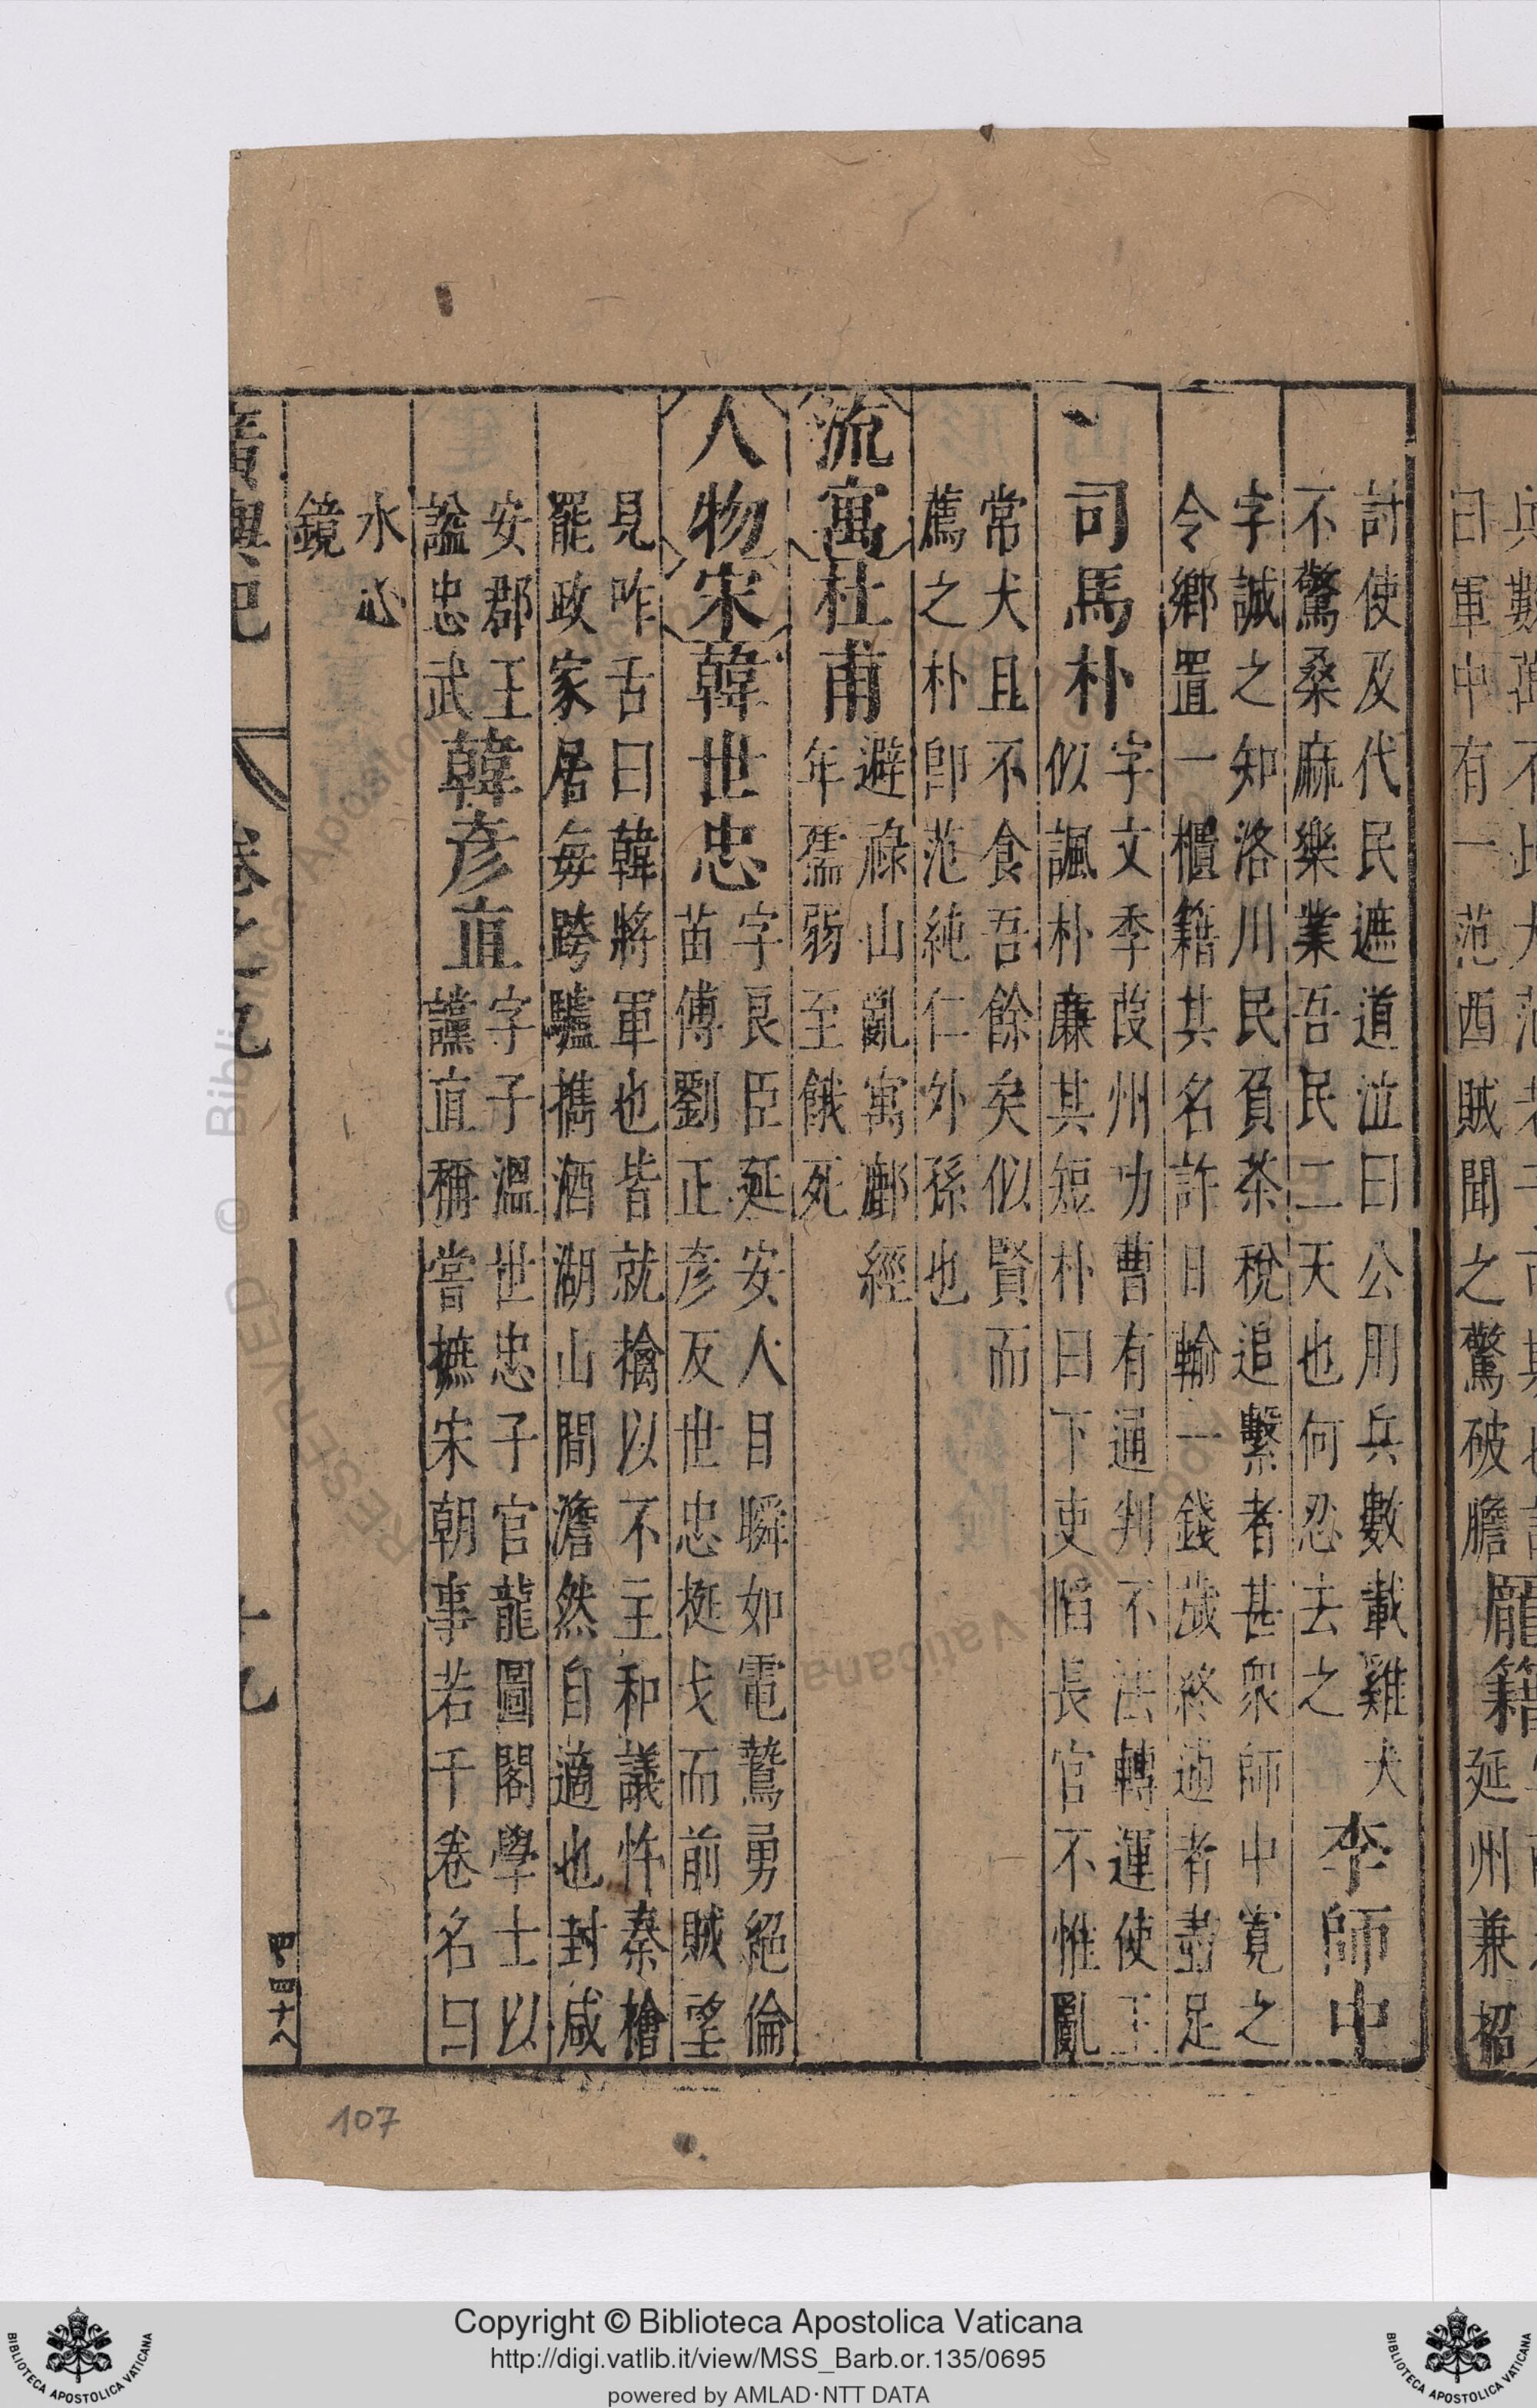 曰軍中有一范西賊聞之驚破膽龐籍延州兼招
討使及代民遮道泣曰公用兵數載雞犬
不驚桑麻樂業吾民二天也何忍去之李師中
字誠之知洛川民負茶稅追繫者甚衆師中寬之
令鄉置一櫃籍其名許日輸一錢歲終逋者盡足
司馬朴字文季葭州功曹有通判不法轉運使王
似諷朴廉其短朴曰下吏陷長官不惟亂
常犬且不食吾餘矣似賢而
薦之朴卽范純仁外孫也
流寓杜甫避祿山亂寓鄜經
年孺弱至餓死
人物宋韓世忠字良臣延安人目瞬如電鷙勇絕倫
苗傅劉正彥反世忠挺戈而前賊望
見咋舌曰韓將軍也皆就擒以不主和議忤秦檜
罷政家居每跨驢擕酒湖山間澹然自適也封咸
安郡王
諡忠武韓彥直字子溫世忠子官龍圖閣學士以
讜直稱嘗摭宋朝事若干卷名曰
水心
鏡
廣輿記
卷
四百四十八
107
Copyright © Biblioteca Apostolica Vaticana
http://digi.vatlib.it/view/MSS_Barb.or.135/0695
powered by AMLAD·NTT DATA
BIBLIOTECA APOSTOLICA VATICANA
BIBLIOTECA APOSTOLICA VATICANA